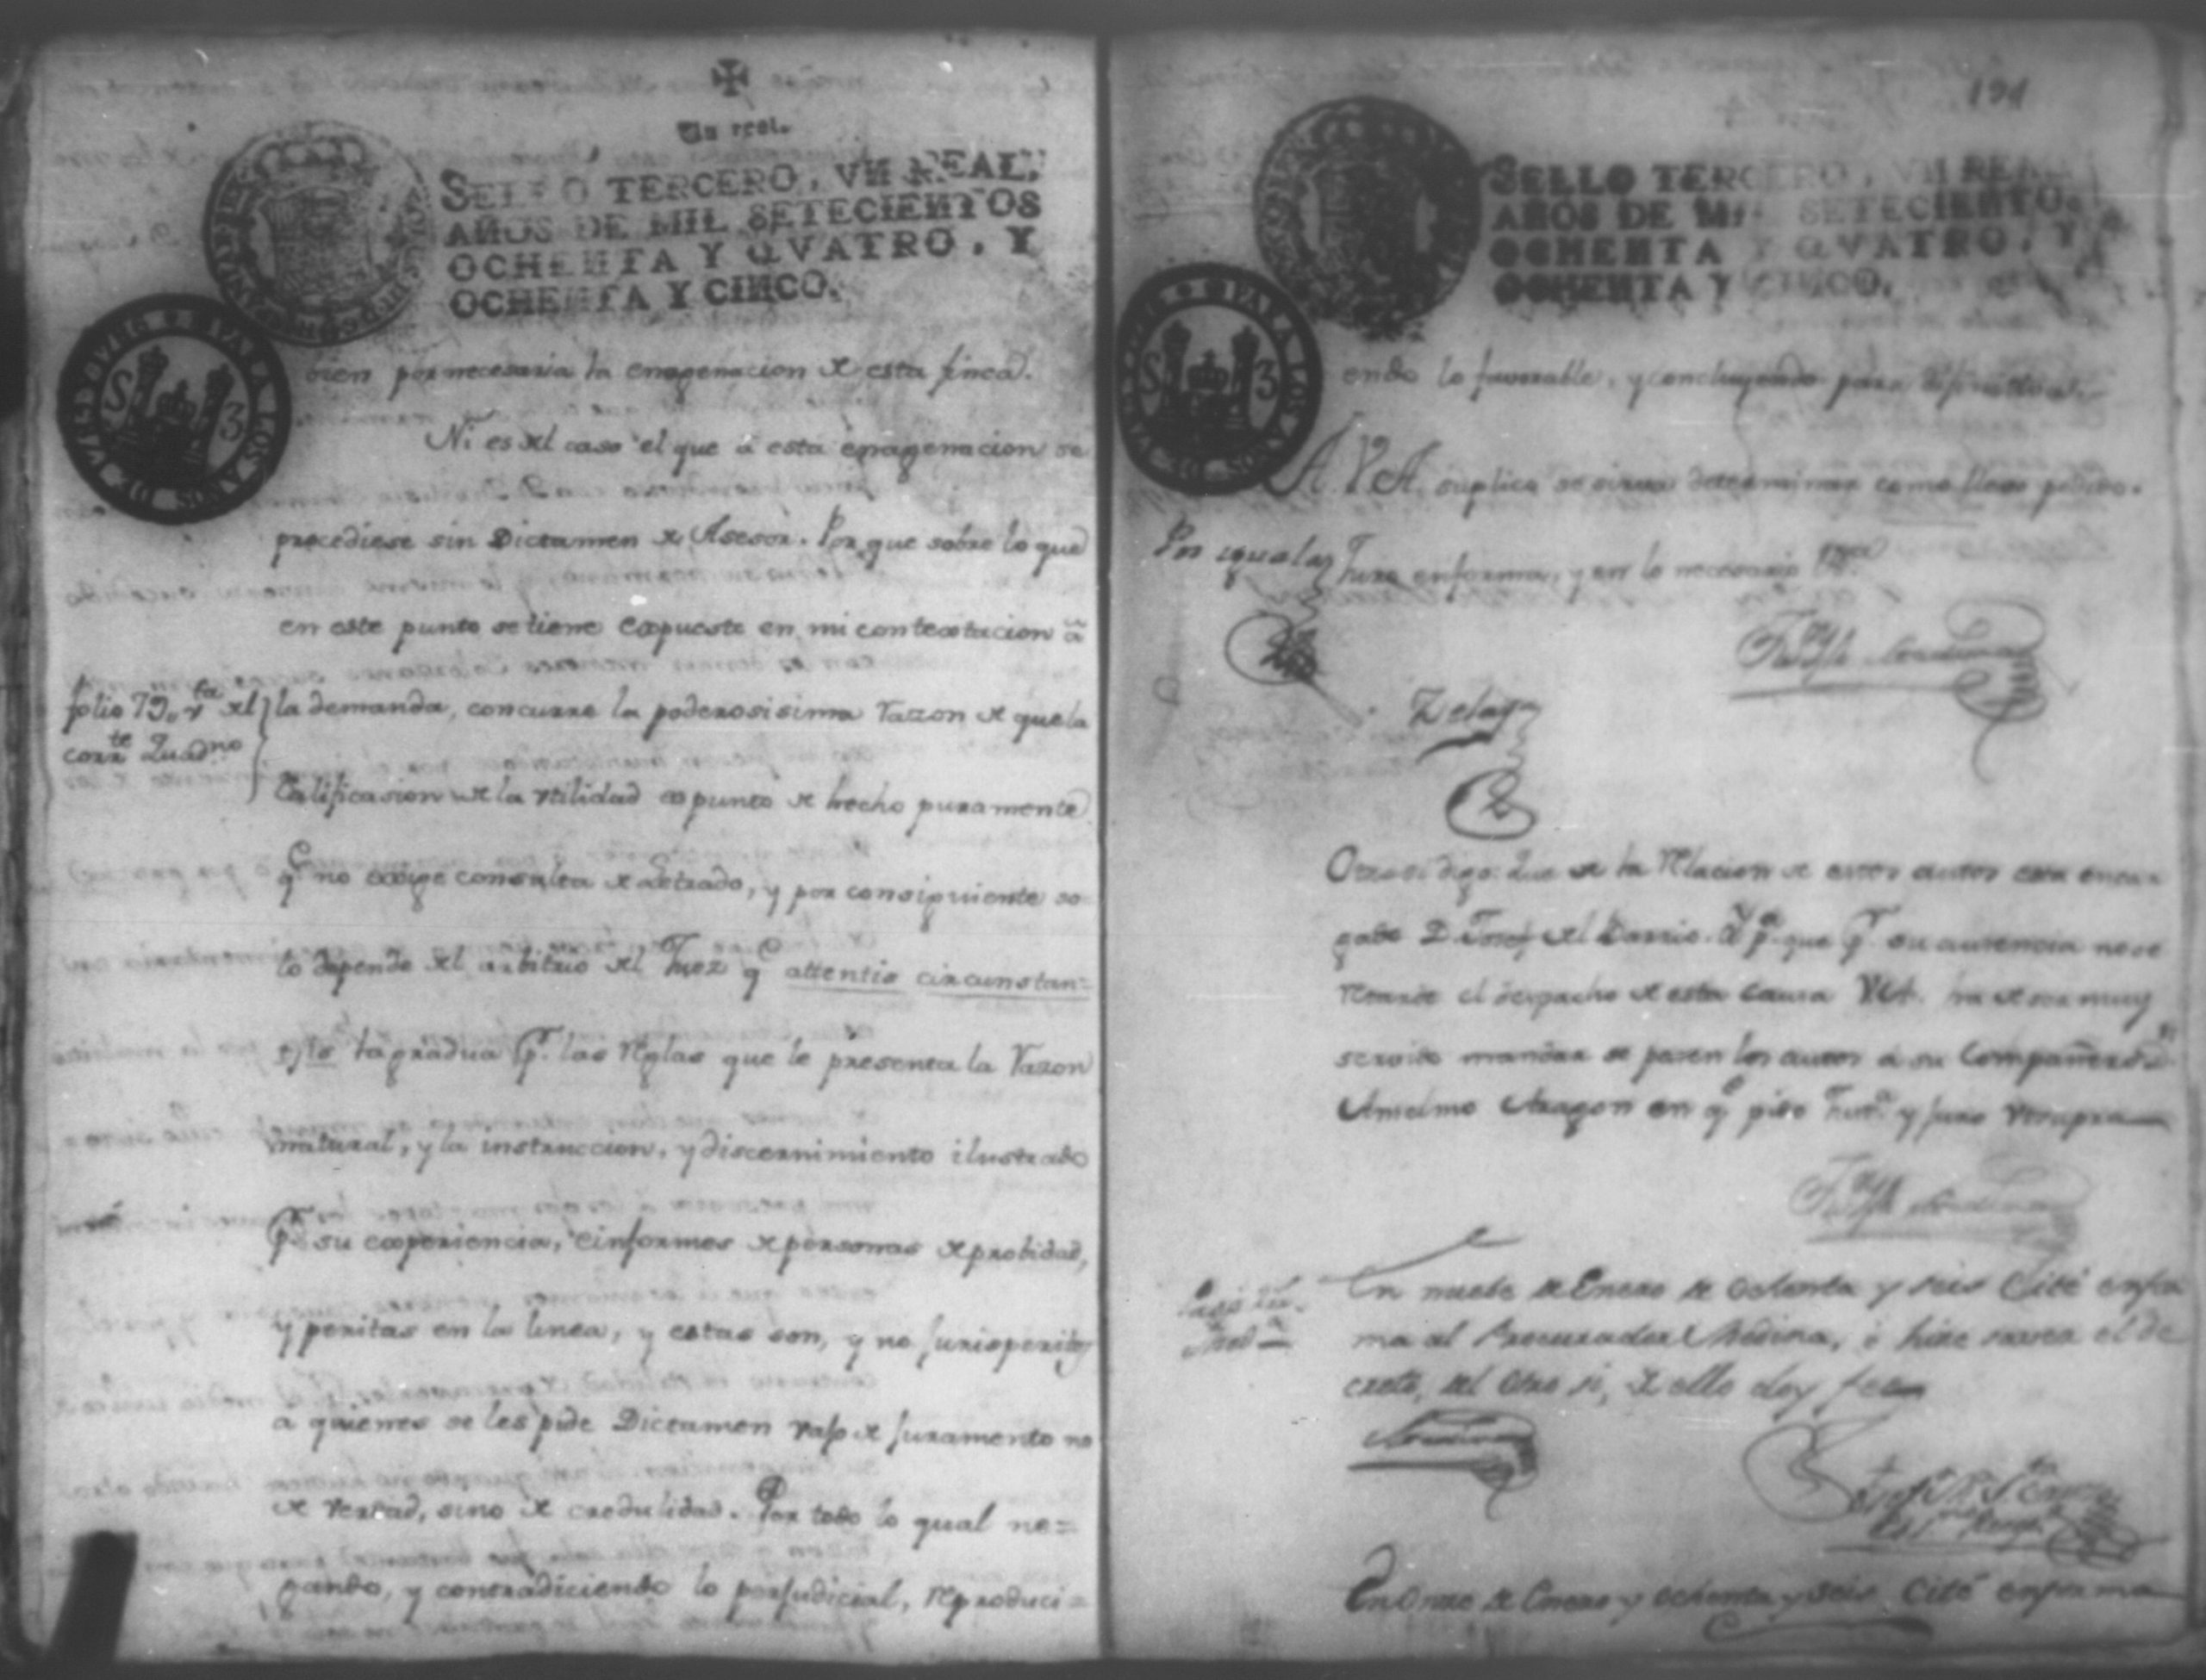 Un real.
SELLO TERCERO, VN REAL,
AÑOS DE MIL SETECIENTOS
OCHENTA Y QVATRO, Y
OCHENTA Y CINCO.
PARA LOS AÑOS DE
S 3
bien por necesaria la enagenacion de esta finca.
Ni es del caso el que â esta enagenacion se
procediese sin Dictamen de Asesor. Por que sobre lo que
en este punto se tiene expuesto en mi contextacion â
folio 79,, vta del
corrte Quadno
la demanda, concurre la poderosisima razon de que la
Calificasion de la vtilidad es punto de hecho puramente
qe no exige consulta de Letrado, y por consiguiente so-
lo depende del arbitrio del Juez qe attentis circunstan-
tiis la gradua pr. las reglas que le presenta la razon
natural, y la instruccion, y discernimiento ilustrado
pr. su experiencia, é informes de personas de probidad,
y peritas en la linea, y estas son, y no Jurisperitos
a quienes se les pide Dictamen vajo de Juramento no
de verdad, sino de credulidad. Por todo lo qual ne=
gando, y contradiciendo lo perjudicial, reproduci=
191
SELLO TERCERO, VN REAL
AÑOS DE MIL SETECIENTOS
OCHENTA Y QVATRO, Y
OCHENTA Y CINCO.
PARA LOS AÑOS DE
S 3
endo lo favorable, y concluyendo para difinitiva.
A. V.A. suplico se sirva determinar como llevo pedido.
Juro en forma, y en lo necesario &ca.
Por
Otrosi digo: Que de la relacion de estos autos esta encar
gado D. Josef del Barrio. Y pa. que pr. su ausencia no se
retarde el despacho de esta causa V.A. ha de ser muy
servido mandar se pasen los autos á su Compañero Dn.
Anselmo Aragon en qe pido Justa. y juro ut supra
En nuebe de Enero de ochenta y seis Cité en for
ma al Procurador Medina, é hise saver el de
creto, del Otro si, de ello doy fee
En Onze de Enero y ochenta y seis Cité en forma